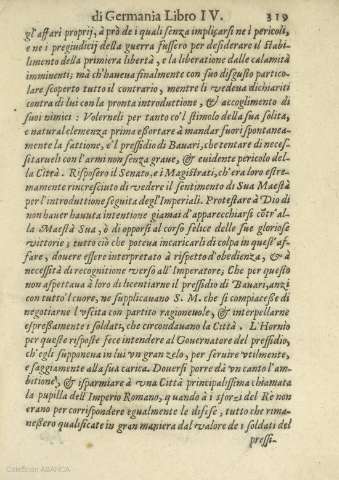 di Germania Libro IV. 319
gl'affari proprij, à prò de i quali senza implicarsi ne i pericoli,
e ne i pregiudicij della guerra fussero per desiderare il stabi-
limento della primiera libertà, e la liberatione dalle calamità
imminenti; mà ch'haueua finalmente con suo disgusto partico-
lare scoperto tutto il contrario, mentre li vedeua dichiariti
contra di lui con la pronta introduttione, & accoglimento di
suoi nimici: Volerneli per tanto co'l stimolo della sua solita,
e natural clemenza prima essortare à mandar fuori spontanea-
mente la fattione, e'l pressidio di Bauari, che tentare di neces-
sitarueli con l'armi non senza graue, & euidente pericolo del-
la Città. Risposero il Senato, e i Magistrati, ch'era loro estre-
mamente rincresciuto di vedere il sentimento di Sua Maestà
per l'introduttione seguita degl'Imperiali. Protestare à Dio di
non hauer hauuta intentione giamai d'apparecchiarsi cõtr'al-
la Maestà Sua, ò di opporsi al corso felice delle sue gloriose
vittorie; tutto ciò che poteua incaricarli di colpa in quest'af-
fare, douere essere interpretato à rispetto d'obedienza, & à
necessità di recognitione verso all'Imperatore; Che per questo
non aspettaua à loro di licentiarne il pressidio di Bauari, anzi
con tutto'l cuore, ne supplicauano S. M. che si compiacesse di
negotiarne l'vscita con partito ragioneuole, & interpellarne
espressamente i soldati, che circondauano la Città. L'Hornio
per queste risposte fece intendere al Gouernatore del pressidio,
ch'egli supponeua in lui vn gran zelo, per seruire vtilmente,
e saggiamente alla sua carica. Douersi porre dà vn canto l'am-
bitione, & risparmiare à vna Città principalissima chiamata
la pupilla dell'Imperio Romano, quando à i sforzi del Re non
erano per corrispondere egualmente le difese, tutto che rima-
nessero qualificate in gran maniera dal valore de i soldati del
pressi-
Colección ABANCA